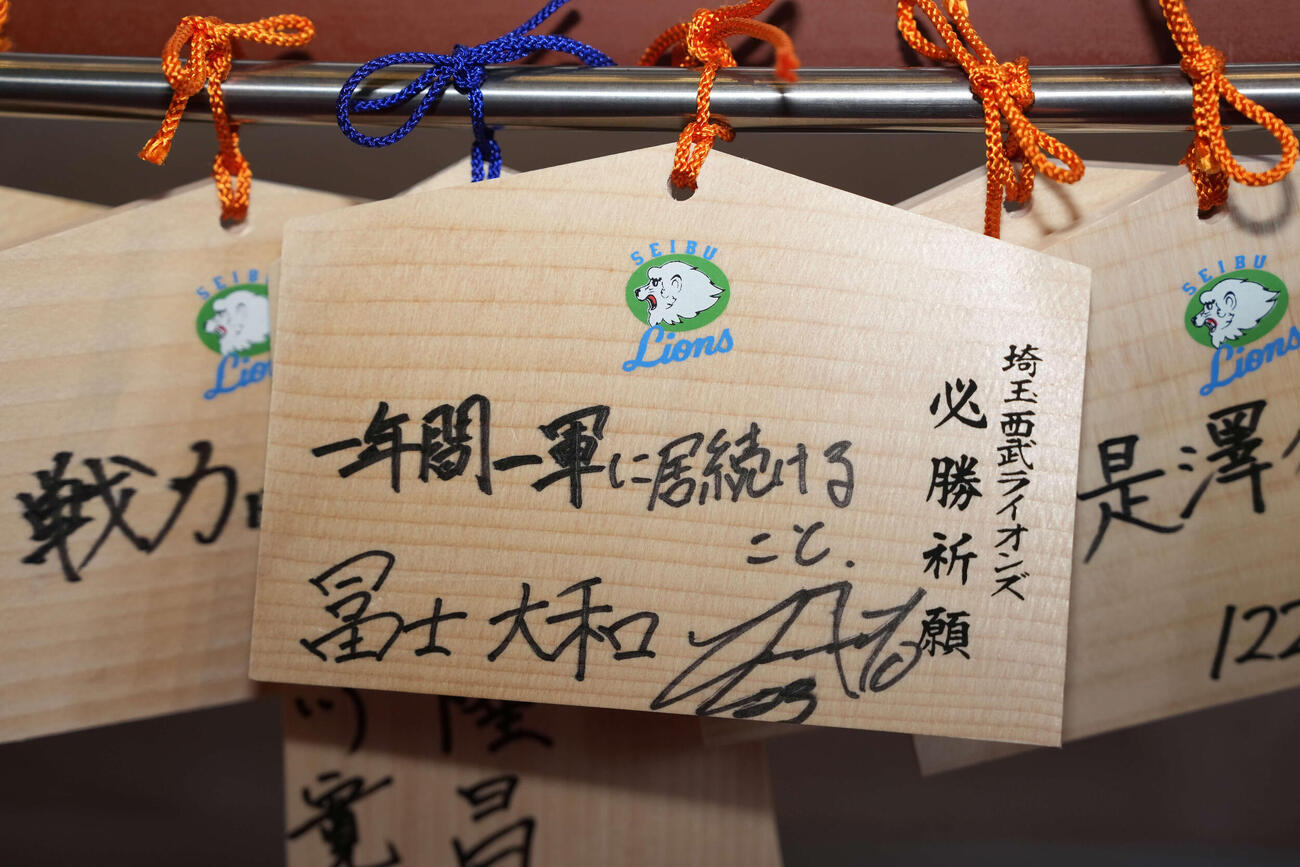 SEIBU
Lions
埼玉西武ライオンズ
必勝祈願
一年間一軍に居続ける
こと.
冨士大和
SEIBU
戦力
SEIBU
Lions
是澤
122